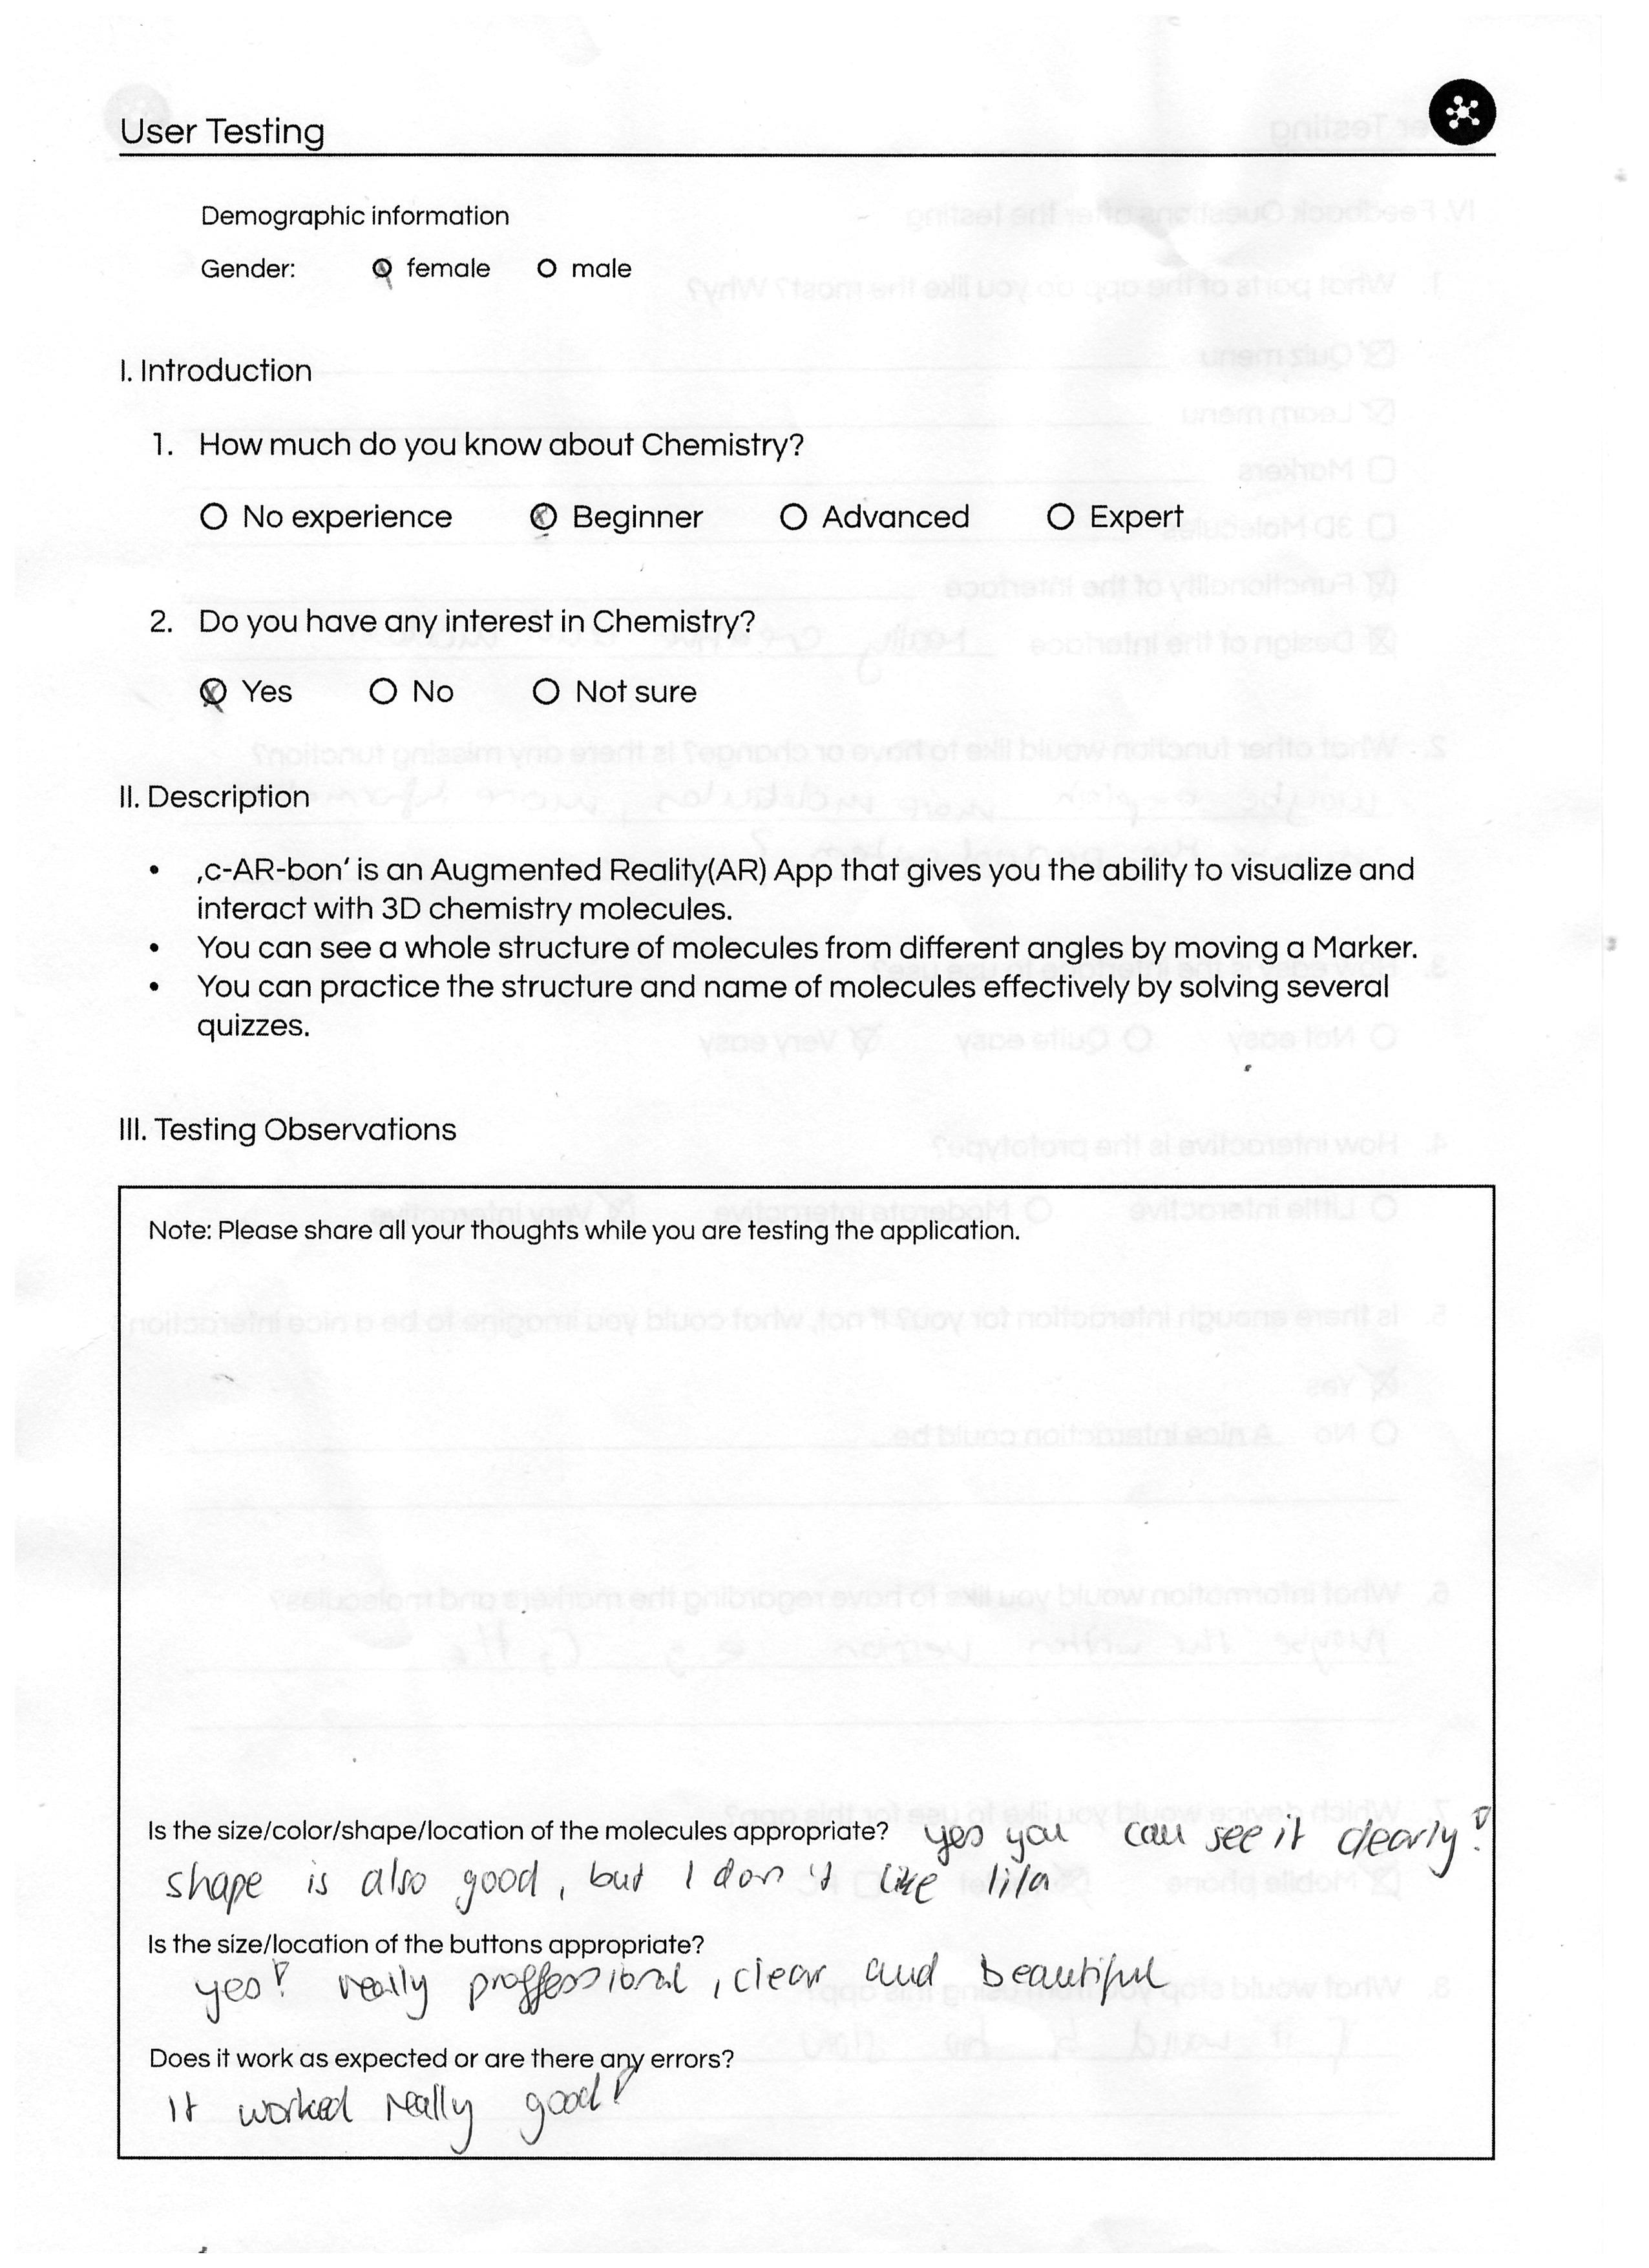 User Testing
Demographic information
Gender: female male
I. Introduction
1. How much do you know about Chemistry?
No experience Beginner Advanced Expert
2. Do you have any interest in Chemistry?
Yes No Not sure
II. Description
• ‚c-AR-bon' is an Augmented Reality(AR) App that gives you the ability to visualize and
interact with 3D chemistry molecules.
• You can see a whole structure of molecules from different angles by moving a Marker.
• You can practice the structure and name of molecules effectively by solving several
quizzes.
III. Testing Observations
Note: Please share all your thoughts while you are testing the application.
Is the size/color/shape/location of the molecules appropriate? yes you can see it clearly!
shape is also good, but I don't like lila
Is the size/location of the buttons appropriate?
yes! really proffessional, clear and beautiful
Does it work as expected or are there any errors?
It worked really good!